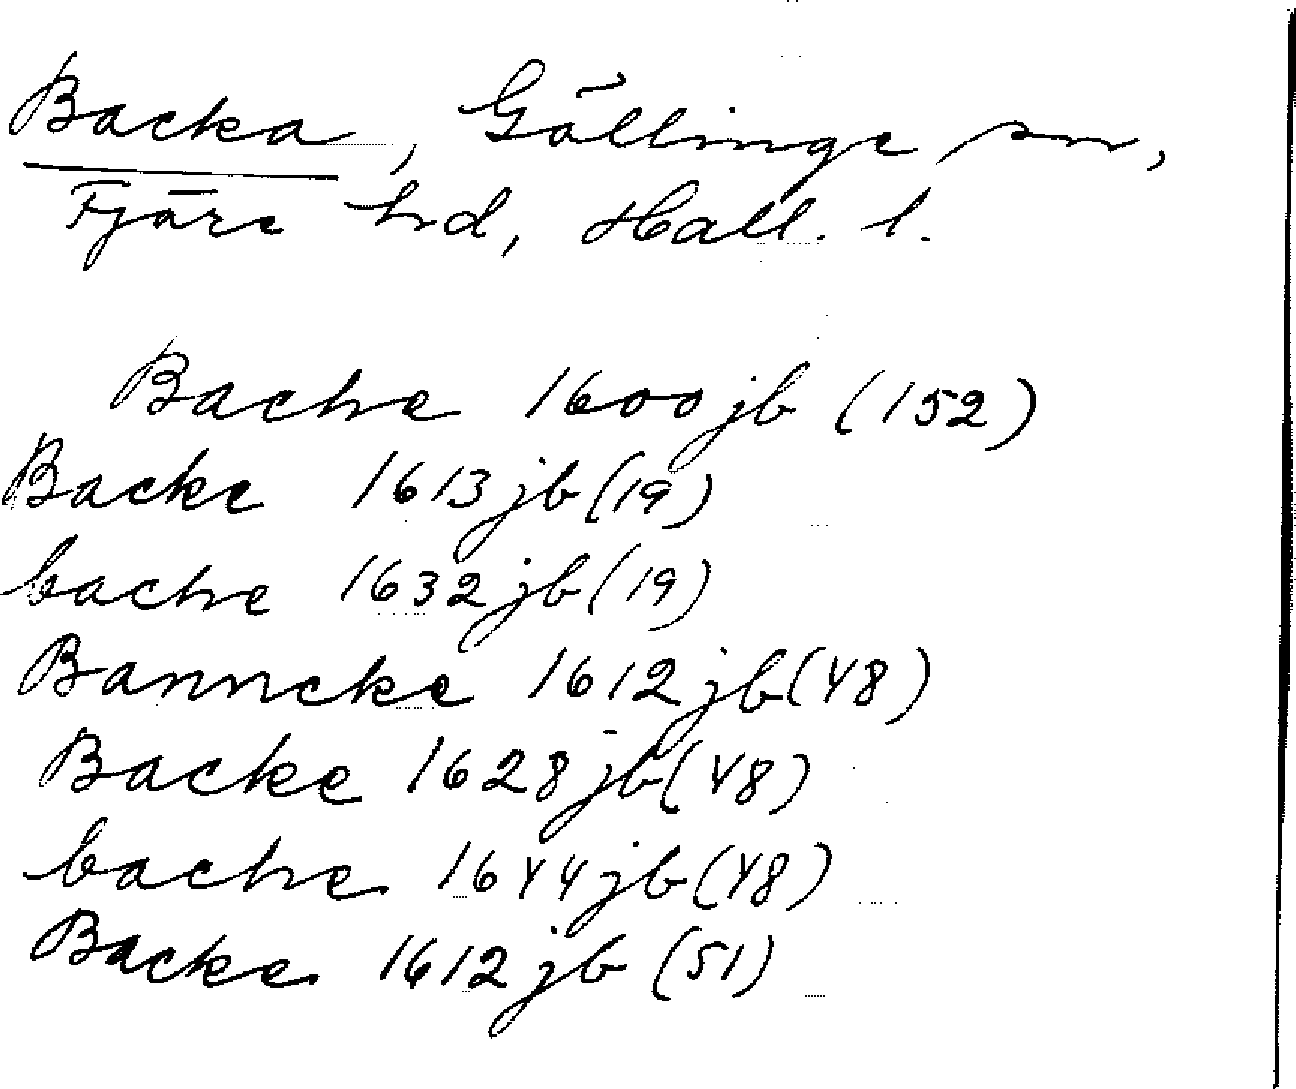 Backa, Gällinge sn,
Fjäre hd, Hall. l.
Bache 1600 jb (152)
Backe 1613 jb (19)
bache 1632 jb (19)
Banncke 1612 jb (48)
Backe 1628 jb (48)
bache 1644 jb (48)
Backe 1612 jb (51)